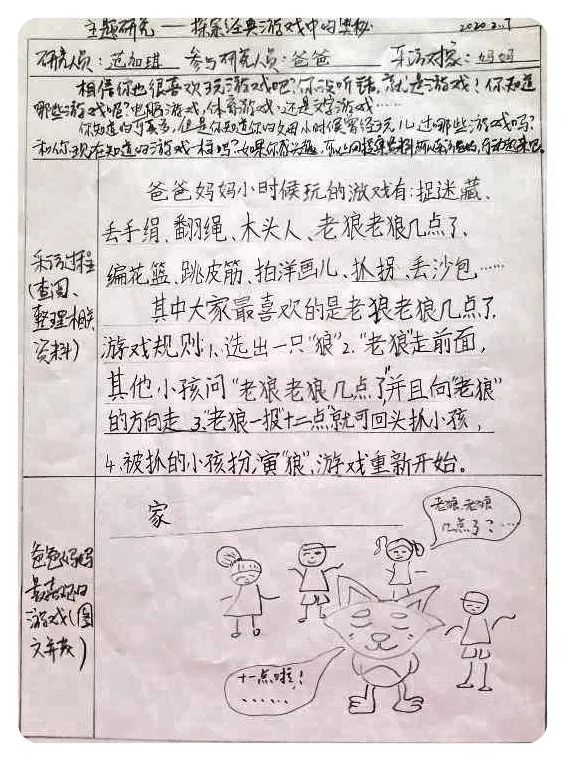 主题研究——探索经典游戏中的奥秘 2020.2.
研究人员：范加琪 参与研究人员：爸爸 采访对象：妈妈
相信你也很喜欢玩游戏吧？你没听错，就是游戏！你知道
哪些游戏呢？电脑游戏，体育游戏，还是文字游戏……
你知道的可真多，但是你知道你的父母小时候曾经玩儿过哪些游戏吗？
和你现在知道的游戏一样吗？如果你感兴趣，
采访过程
（查阅、
整理相关
资料）
爸爸妈妈小时候玩的游戏有：捉迷藏、
丢手绢、翻绳、木头人、老狼老狼几点了、
编花篮、跳皮筋、拍洋画儿、抓拐、丢沙包……
其中大家最喜欢的是老狼老狼几点了。
游戏规则1.选出一只“狼”2.“老狼”走前面，
其他小孩问“老狼老狼几点了”并且向“老狼”
的方向走 3.“老狼一报十二点”就可回头抓小孩，
4.被抓的小孩扮演“狼”，游戏重新开始。
爸爸妈妈
最喜欢的
游戏（图
文并茂）
家
老狼，老狼
几点了？…
十一点啦！
……